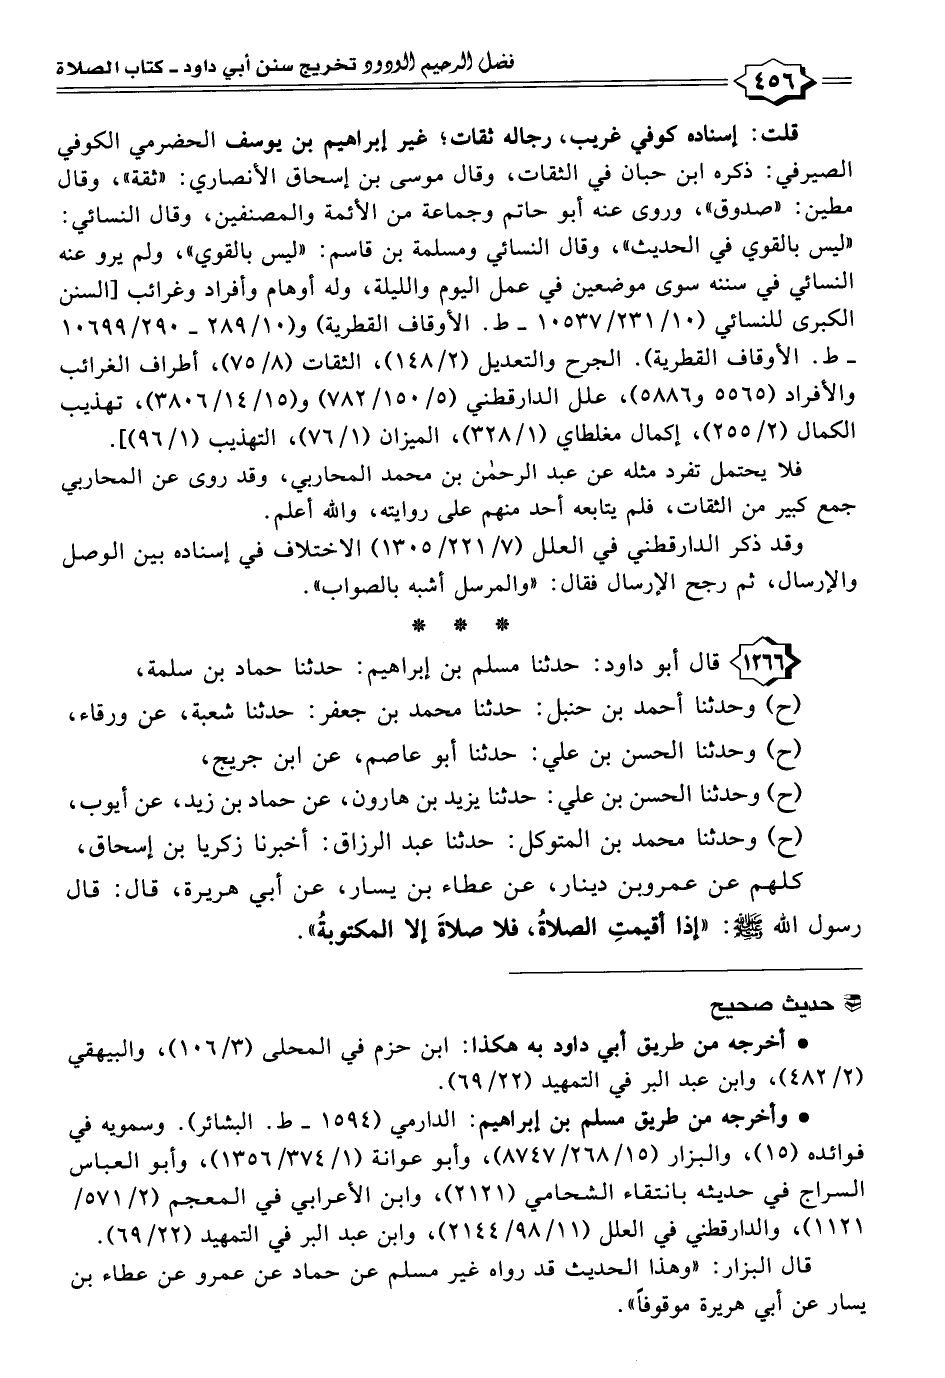 فضل الرحيم الودود تخريج سنن أبي داود ـ كتاب الصلاة
٤٥٦
قلت: إسناده كوفي غريب، رجاله ثقات؛ غير إبراهيم بن يوسف الحضرمي الكوفي
الصيرفي: ذكره ابن حبان في الثقات، وقال موسى بن إسحاق الأنصاري: «ثقة»، وقال
مطين: «صدوق»، وروى عنه أبو حاتم وجماعة من الأئمة والمصنفين، وقال النسائي:
«ليس بالقوي في الحديث»، وقال النسائي ومسلمة بن قاسم: «ليس بالقوي»، ولم يرو عنه
النسائي في سننه سوى موضعين في عمل اليوم والليلة، وله أوهام وأفراد وغرائب [السنن
الكبرى للنسائي (١٠/٢٣١/١٠٥٣٧ ـ ط. الأوقاف القطرية) و(١٠/٢٨٩ ـ ٢٩٠/١٠٦٩٩
ـ ط. الأوقاف القطرية). الجرح والتعديل (٢/١٤٨)، الثقات (٨/٧٥)، أطراف الغرائب
والأفراد (٥٥٦٥ و٥٨٨٦)، علل الدارقطني (٥/١٥٠/٧٨٢) و(١٥/١٤/٣٨٠٦)، تهذيب
الكمال (٢/٢٥٥)، إكمال مغلطاي (١/٣٢٨)، الميزان (١/٧٦)، التهذيب (١/٩٦)].
فلا يحتمل تفرد مثله عن عبد الرحمٰن بن محمد المحاربي، وقد روى عن المحاربي
جمع كبير من الثقات، فلم يتابعه أحد منهم على روايته، والله أعلم.
وقد ذكر الدارقطني في العلل (٧/٢٢١/١٣٠٥) الاختلاف في إسناده بين الوصل
والإرسال، ثم رجح الإرسال فقال: «والمرسل أشبه بالصواب».
* * *
١٢٦٦ قال أبو داود: حدثنا مسلم بن إبراهيم: حدثنا حماد بن سلمة،
(ح) وحدثنا أحمد بن حنبل: حدثنا محمد بن جعفر: حدثنا شعبة، عن ورقاء،
(ح) وحدثنا الحسن بن علي: حدثنا أبو عاصم، عن ابن جريج،
(ح) وحدثنا الحسن بن علي: حدثنا يزيد بن هارون، عن حماد بن زيد، عن أيوب،
(ح) وحدثنا محمد بن المتوكل: حدثنا عبد الرزاق: أخبرنا زكريا بن إسحاق،
كلهم عن عمروبن دينار، عن عطاء بن يسار، عن أبي هريرة، قال: قال
رسول الله ﷺ: «إذا أقيمتِ الصلاةُ، فلا صلاةَ إلا المكتوبةُ».
حديث صحيح
• أخرجه من طريق أبي داود به هكذا: ابن حزم في المحلى (٣/١٠٦)، والبيهقي
(٢/٤٨٢)، وابن عبد البر في التمهيد (٢٢/٦٩).
• وأخرجه من طريق مسلم بن إبراهيم: الدارمي (١٥٩٤ ـ ط. البشائر). وسمويه في
فوائده (١٥)، والبزار (١٥/٢٦٨/٨٧٤٧)، وأبو عوانة (١/٣٧٤/١٣٥٦)، وأبو العباس
السراج في حديثه بانتقاء الشحامي (٢١٢١)، وابن الأعرابي في المعجم (٢/٥٧١/
١١٢١)، والدارقطني في العلل (١١/٩٨/٢١٤٤)، وابن عبد البر في التمهيد (٢٢/٦٩).
قال البزار: «وهذا الحديث قد رواه غير مسلم عن حماد عن عمرو عن عطاء بن
يسار عن أبي هريرة موقوفاً».